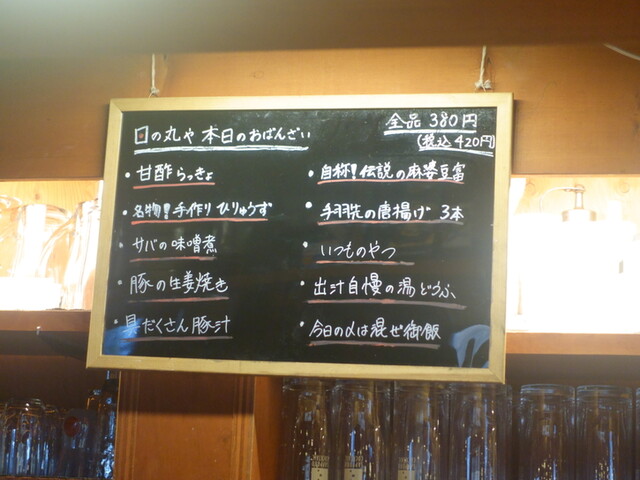 日の丸や 本日のおばんざい
全品 380円
(税込 420円)
・甘酢らっきょ
・名物!手作り ひりゅうず
・サバの味噌煮
・豚の生姜焼き
・具だくさん豚汁
・自称!伝説の麻婆豆腐
・手羽先の唐揚げ 3本
・いつものやつ
・出汁自慢の湯どうふ
・今日のαは混ぜ御飯